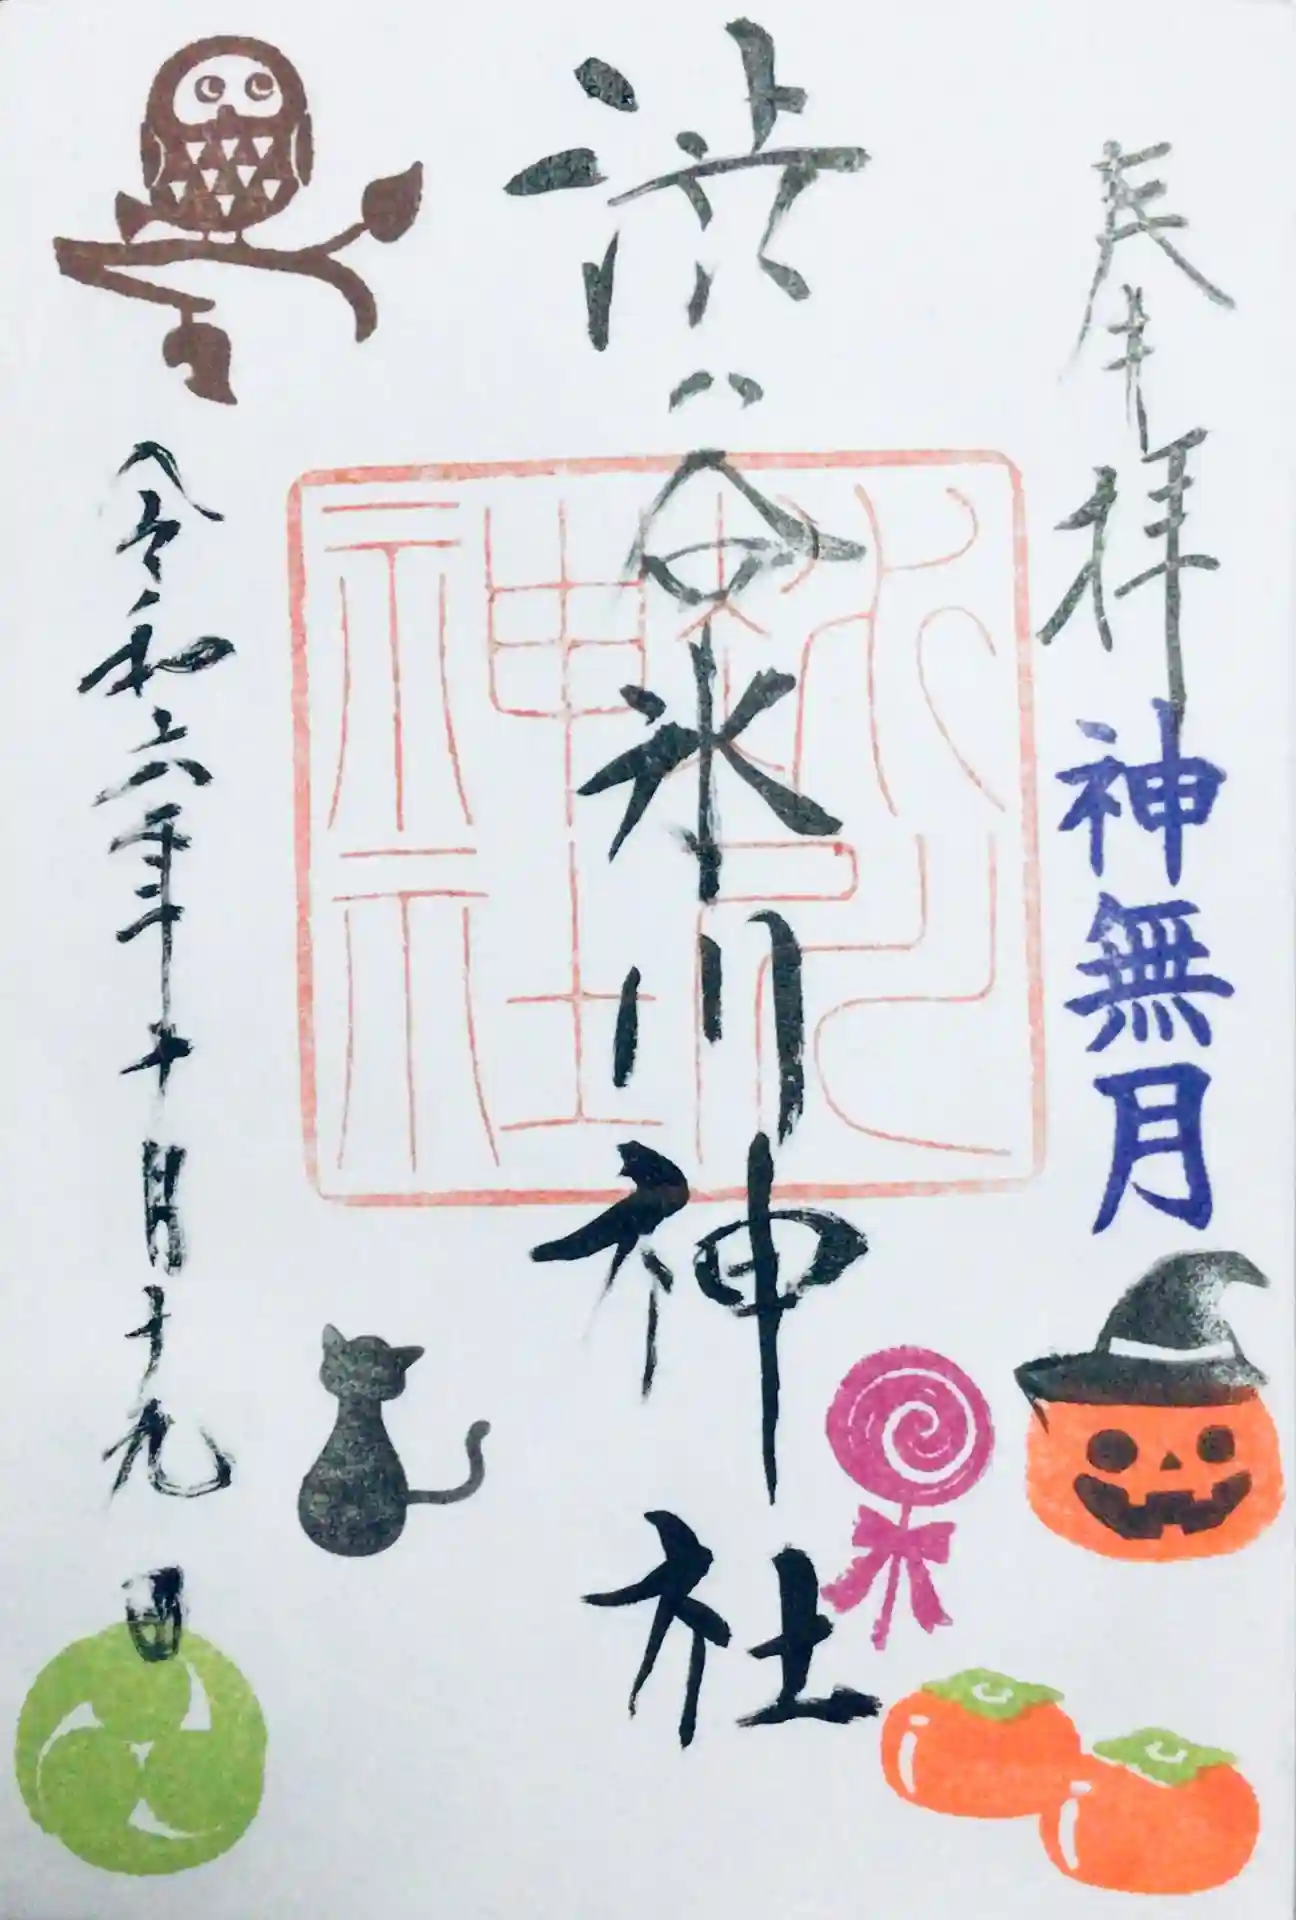 奉拝
神無月
渋谷氷川神社
氷川
神社
令和六年十月十九日